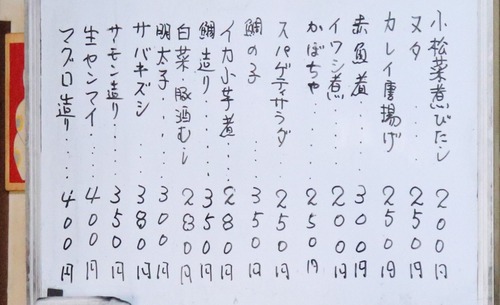 小松菜煮びたし 200円
ヌタ ・・・・ 250円
カレイ唐揚げ 250円
赤魚煮・・・・ 300円
イワシ煮・・・ 200円
かぼちゃ・・・ 250円
スパゲティサラダ 250円
鯛の子・・・・ 350円
イカ小芋煮・・ 280円
鯛造り・・・・ 350円
白菜・豚酒むし 280円
明太子・・・・ 300円
サバキズシ・・ 380円
サーモン造り・・ 350円
生ヤンマイ・・・ 400円
マグロ造り・・・・ 400円